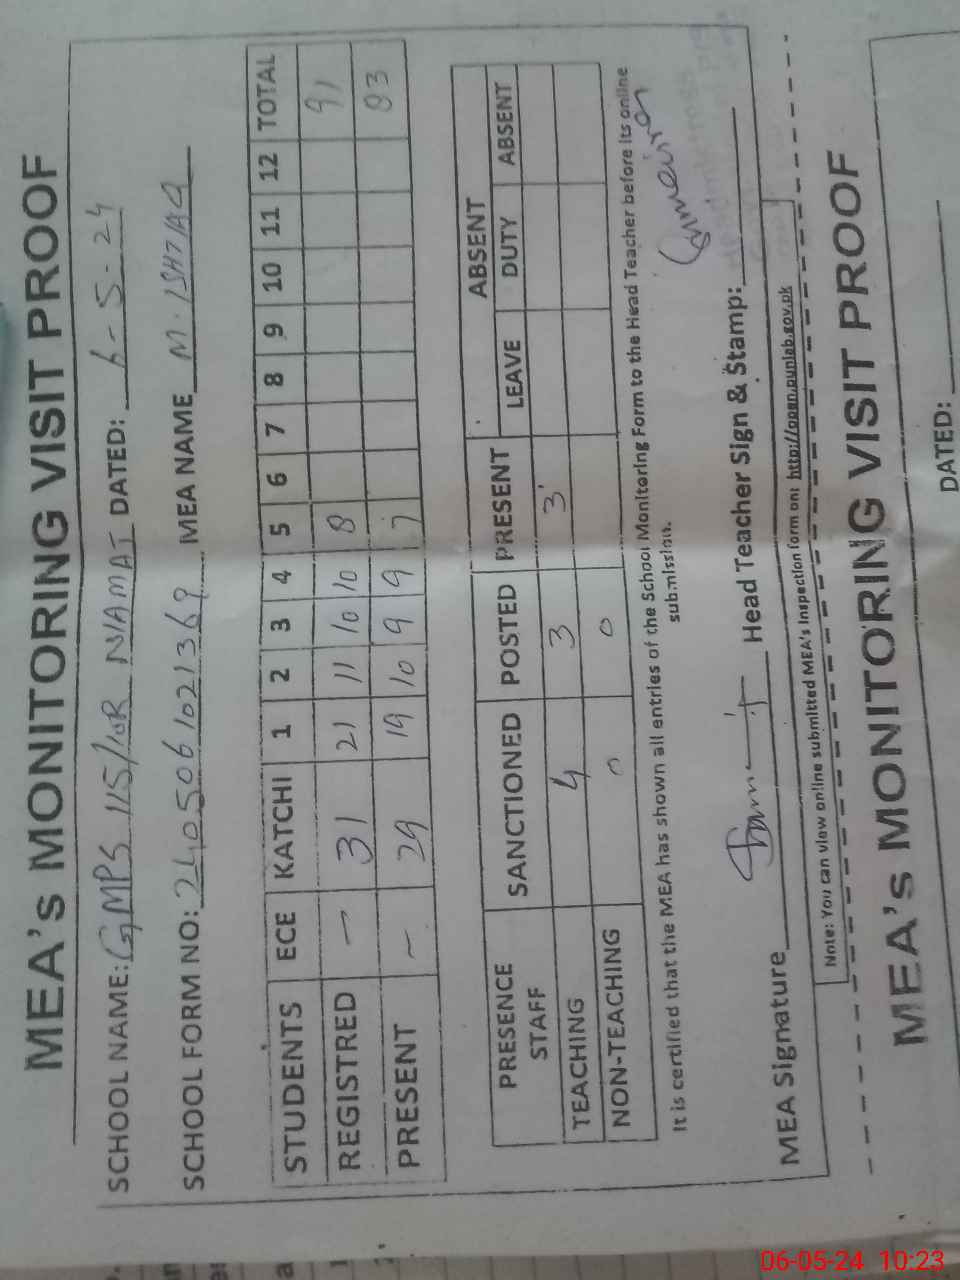 MEA's MONITORING VISIT PROOF
SCHOOL NAME: GMPS 115/10R NIAMAT DATED: 6-5-24
SCHOOL FORM NO: MEA NAME M. ISHTIAQ
STUDENTS ECE KATCHI 1 2 3 4 5 6 7 8 9 10 11 12 TOTAL
REGISTRED - 31 21 11 10 10 8 91
PRESENT - 29 19 10 9 9 7 83
PRESENCE STAFF SANCTIONED POSTED PRESENT ABSENT
LEAVE DUTY ABSENT
TEACHING 4 3 3
NON-TEACHING 0 0
It is certified that the MEA has shown all entries of the School Monitoring Form to the Head Teacher before its online
submission.
MEA Signature Head Teacher Sign & Stamp:
Note: You can view online submitted MEA's inspection form on: http://open.punjab.gov.pk
MEA's MONITORING VISIT PROOF
DATED:
06-05-24 10:23